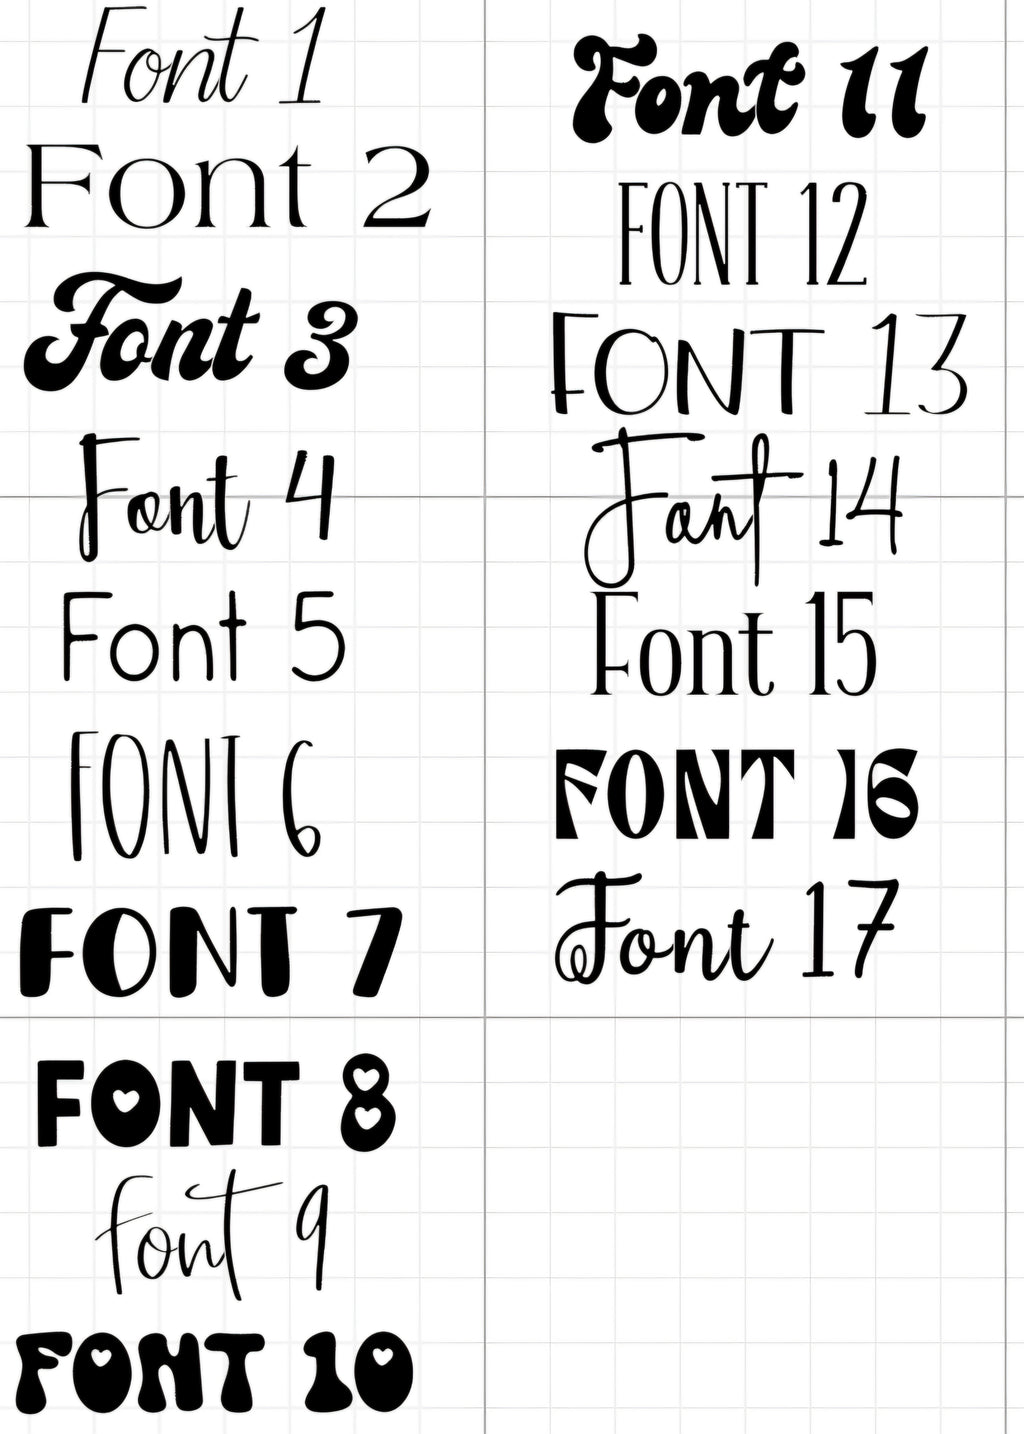 Font 1
Font 2
Font 3
Font 4
Font 5
FONT 6
FONT 7
FONT 8
font 9
FONT 10
Font 11
FONT 12
FONT 13
Font 14
Font 15
FONT 16
Font 17